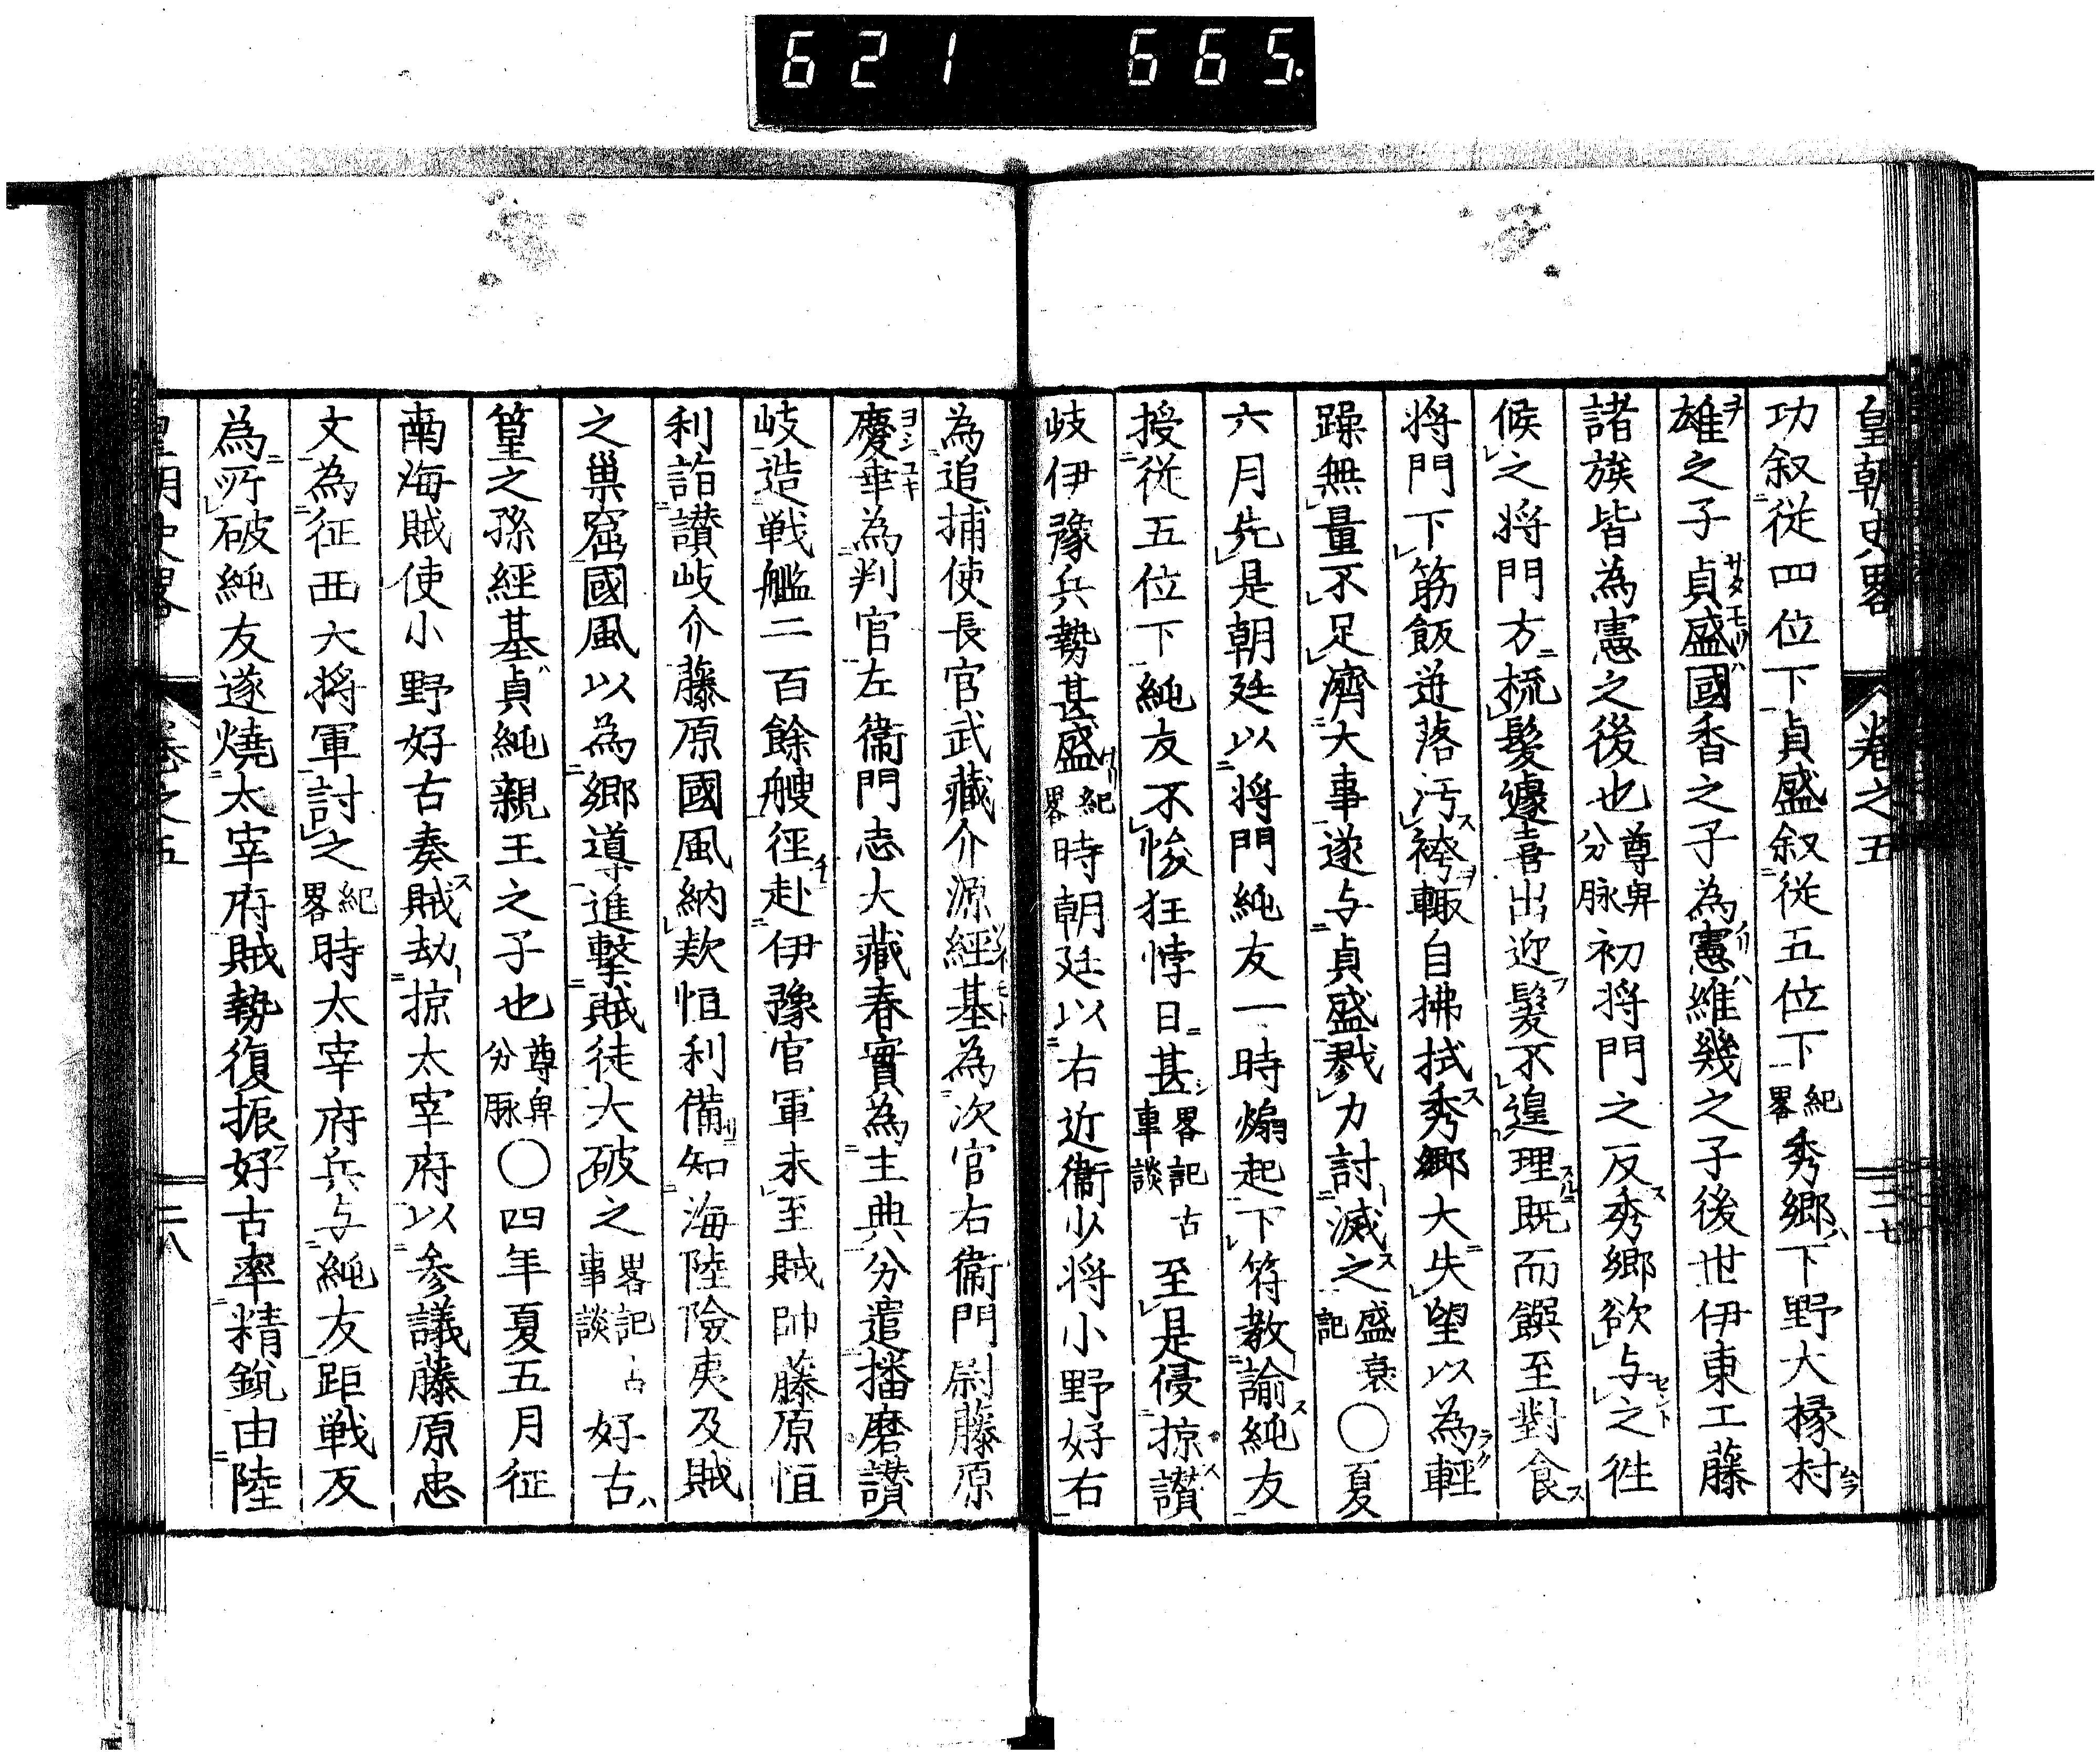 621 665.
皇朝史畧 卷之五 三七
功叙従四位下貞盛叙従五位下紀畧秀郷下野大掾村
雄之子貞盛國香之子為憲維幾之子後世伊東工藤
諸族皆為憲之後也尊卑分脉初将門之反秀郷欲与之徃
候之将門方梳髮遽喜出迎髮不遑理既而饌至對食
将門下筯飯迸落汚袴輙自拂拭秀郷大失望以為輕
躁無量不足濟大事遂与貞盛戮力討滅之盛衰記〇夏
六月先是朝廷以将門純友一時煽起下符教諭純友
授従五位下純友不悛狂悖日甚畧記古事談至是侵掠讃
岐伊豫兵勢甚盛紀畧時朝廷以右近衞少将小野好右
為追捕使長官武藏介源經基為次官右衞門尉藤原
慶幸為判官左衞門志大藏春實為主典分遣播磨讃
岐造戦艦二百餘艘徑赴伊豫官軍未至賊帥藤原恒
利詣讃岐介藤原國風納欵恒利備知海陸險夷及賊
之巣窟國風以為郷導進擊賊徒大破之畧記古事談好古
篁之孫經基貞純親王之子也尊卑分脉〇四年夏五月征
南海賊使小野好古奏賊劫掠太宰府以参議藤原忠
文為征西大将軍討之紀畧時太宰府兵与純友距戦反
為所破純友遂燒太宰府賊勢復振好古率精鋭由陸
皇朝史畧 卷之五 三八